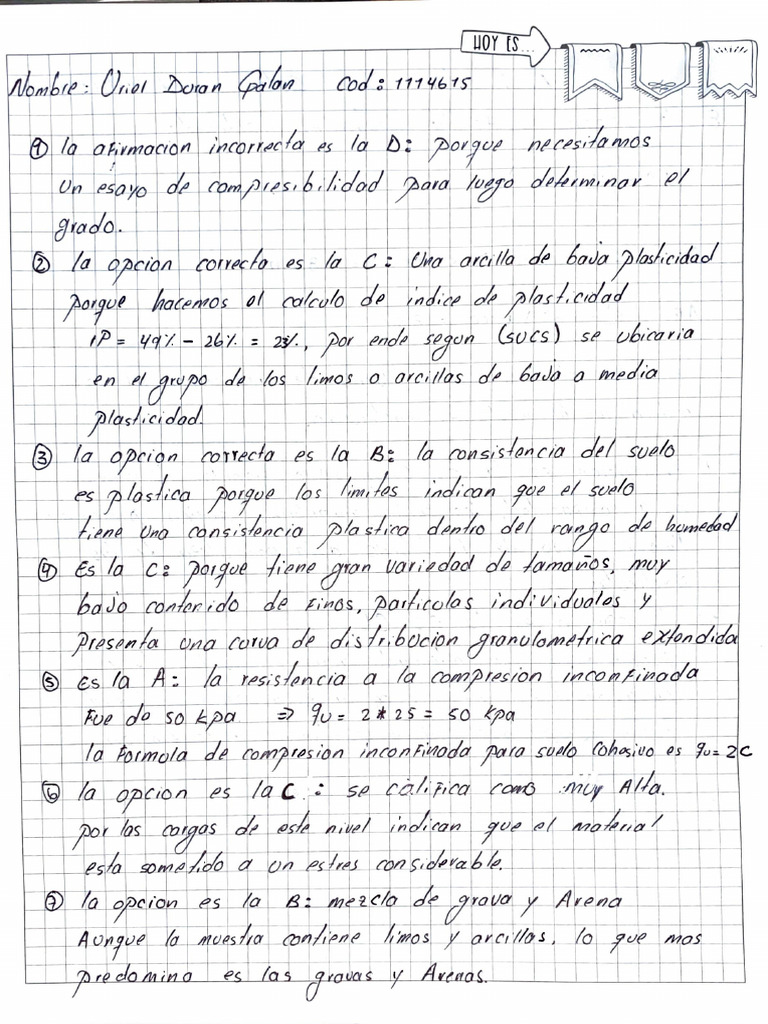 HOY ES...
Nombre: Uriel Duran Galan cod: 1114615
① la afirmacion incorrecta es la D: porque necesitamos
Un esayo de compresibilidad para luego determinar el
grado.
② la opcion correcta es la C: Una arcilla de baja plasticidad
porque hacemos el calculo de indice de plasticidad
IP = 49% - 26% = 23%, por ende segun (SUCS) se ubicaria
en el grupo de los limos o arcillas de baja a media
plasticidad.
③ la opcion correcta es la B: la consistencia del suelo
es plastica porque los limites indican que el suelo
tiene una consistencia plastica dentro del rango de humedad
④ Es la C: porque tiene gran variedad de tamaños, muy
bajo contenido de finos, particulas individuales y
presenta una curva de distribucion granulometrica extendida
⑤ Es la A: la resistencia a la compresion inconfinada
Fue de 50 kpa ⇒ qu = 2 * 25 = 50 kpa
la Formula de compresion inconfinada para suelo cohesivo es qu = 2C
⑥ la opcion es la C : se califica como muy Alta.
por las cargas de este nivel indican que el material
esta sometido a un estres considerable.
⑦ la opcion es la B: mezcla de grava y Arena
Aunque la muestra contiene limos y arcillas, lo que mas
predomina es las gravas y Arenas.